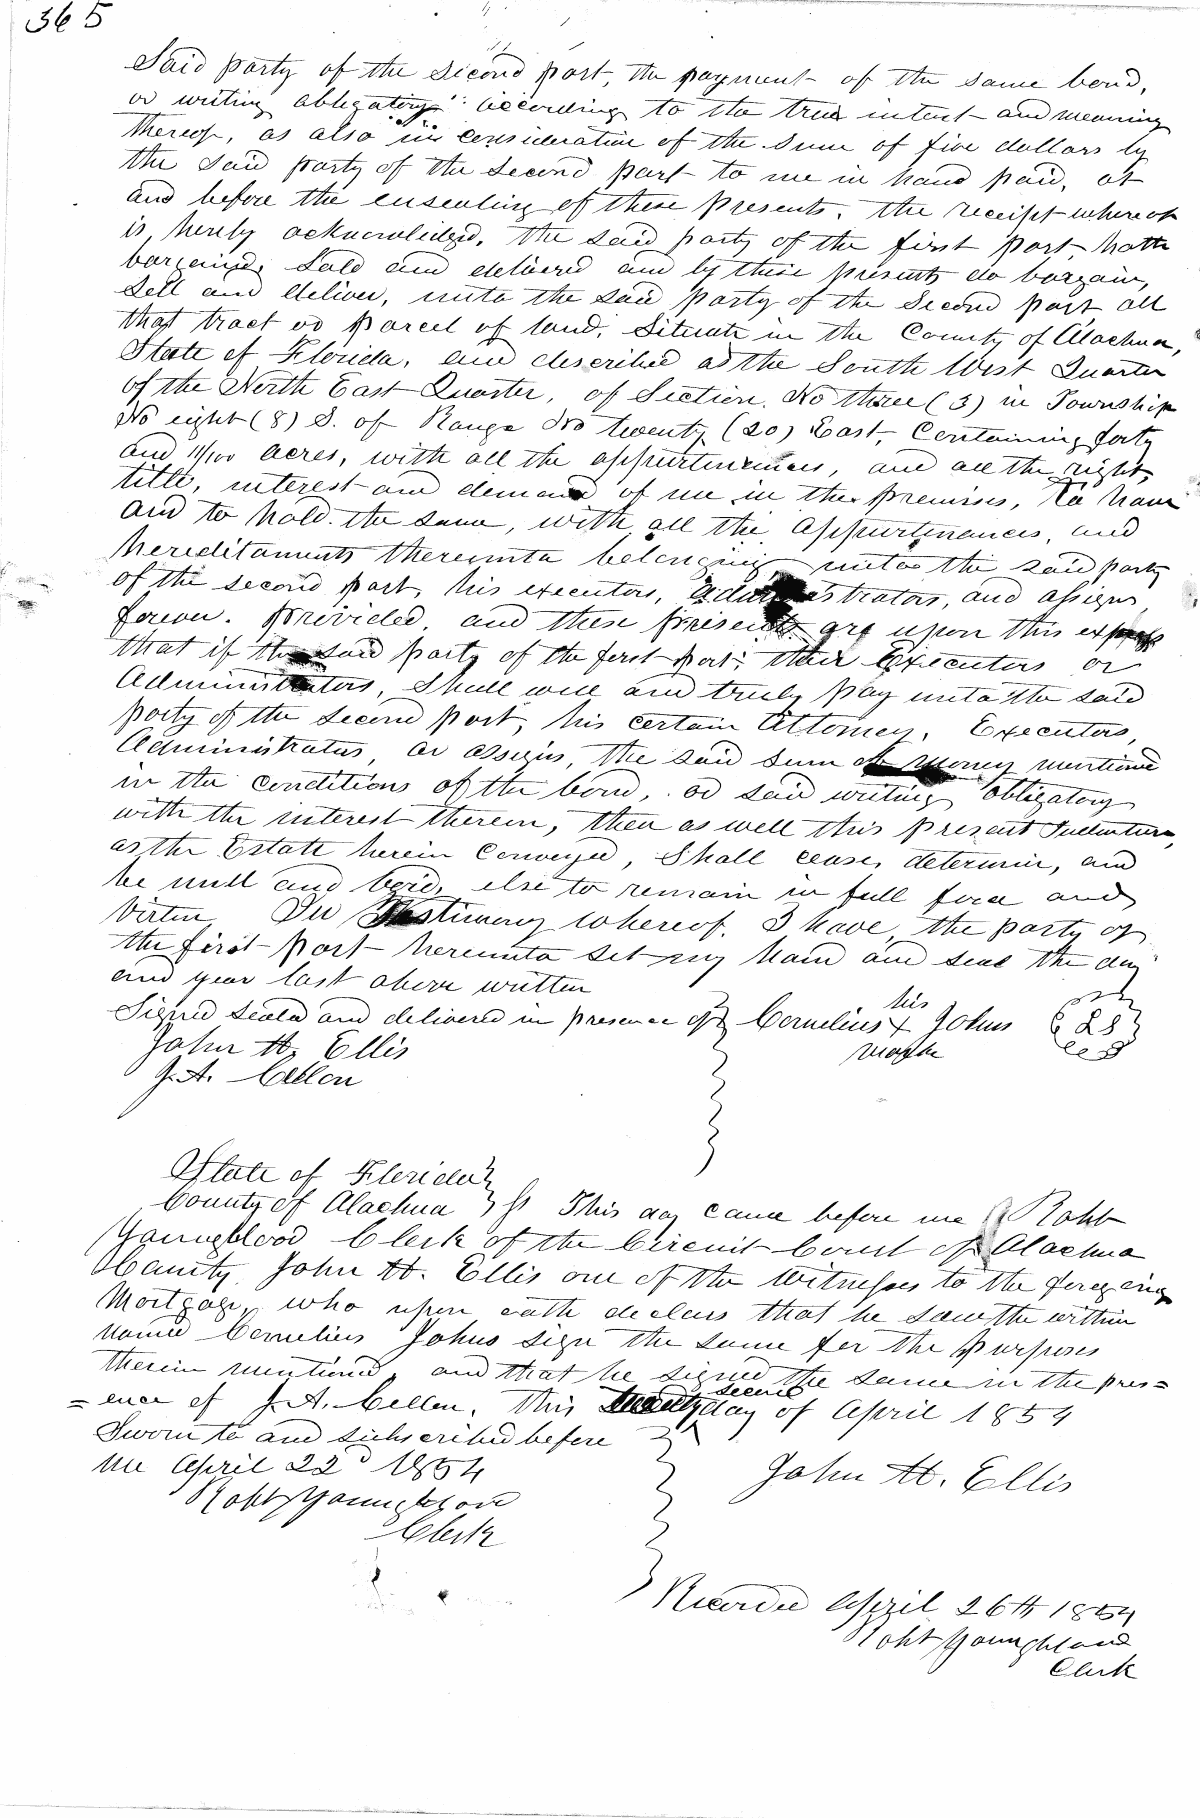 365
Said party of the second part, the payment of the same bond,
or writing obligatory according to the true intent and meaning
thereof, as also in consideration of the sum of five dollars by
the said party of the second part to me in hand paid, at
and before the ensealing of these presents. the receipt whereof
is hereby acknowledged, the said party of the first part, hath
bargained, sold and delivered and by these presents do bargain,
sell and deliver, unto the said party of the second part all
that tract or parcel of land, situate in the County of Alachua,
State of Florida, and described as the South West Quarter
of the North East Quarter, of Section No three (3) in Township
No eight (8) S. of Range No twenty (20) East, Containing forty
and 11/100 acres, with all the appurtenances, and all the right,
title, interest and demand of me in the premises, To have
and to hold the same, with all the appurtenances, and
hereditaments thereunto belonging unto the said party
of the second part, his executors, administrators, and assigns
forever. Provided, and these presents are upon this express
that if the said party of the first part, their Executors or
Administrators, Shall well and truly pay unto the said
party of the second part, his certain Attorney, Executors,
Administrators, or assigns, the said sum of money mentioned
in the conditions of the bond, or said writing obligatory
with the interest therein, then as well this present Indenture,
as the Estate herein Conveyed, Shall cease, determine, and
be null and void, else to remain in full force and
virtue In Testimony whereof, I have, the party of
the first part hereunto set my hand and seal the day
and year last above written
Signed sealed and delivered in presence of Cornelius his x mark Johns LS
John H. Ellis
J. A. Cellon
State of Florida
County of Alachua } ss This day came before me Robt
Youngblood Clerk of the Circuit Court of Alachua
County, John H. Ellis one of the witnesses to the foregoing
Mortgage, who upon oath declars that he saw the within
named Cornelius Johns sign the same for the purposes
therein mentioned, and that he signed the same in the pres=
=ence of J. A. Cellon, this twenty second day of April 1854
Sworn to and subscribed before
me April 22d 1854
John H. Ellis
Robt Youngblood
Clerk
Recorded April 26th 1854
Robt Youngblood
Clerk